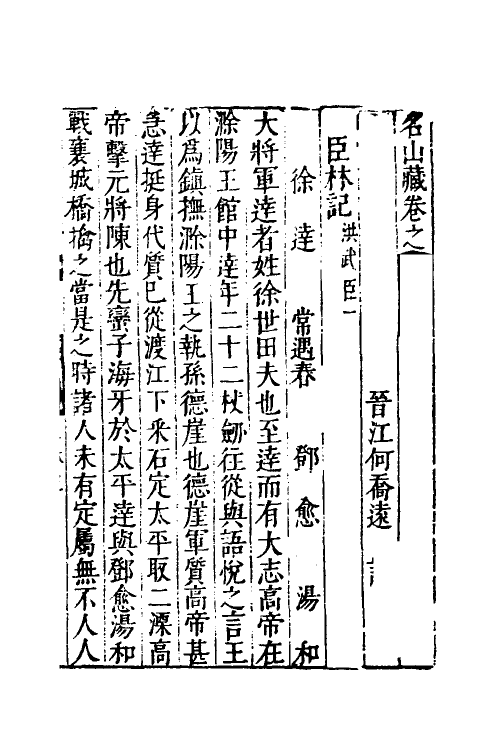 名山藏卷之
晉江何喬遠
臣林記 洪武臣一
徐達 常遇春 鄧愈 湯和
大將軍達者姓徐世田夫也至達而有大志高帝在
滁陽王館中達年二十二杖劒往從與語悅之言王
以爲鎮撫滁陽王之執孫德崖也德崖軍質高帝甚
急達挺身代質已從渡江下采石定太平取二溧高
帝擊元將陳也先蠻子海牙於太平達與鄧愈湯和
戰襄城橋擒之當是之時諸人未有定屬無不人人